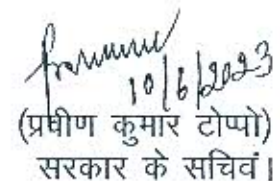 10/6/2023
(प्रवीण कुमार टोप्पो)
सरकार के सचिव।